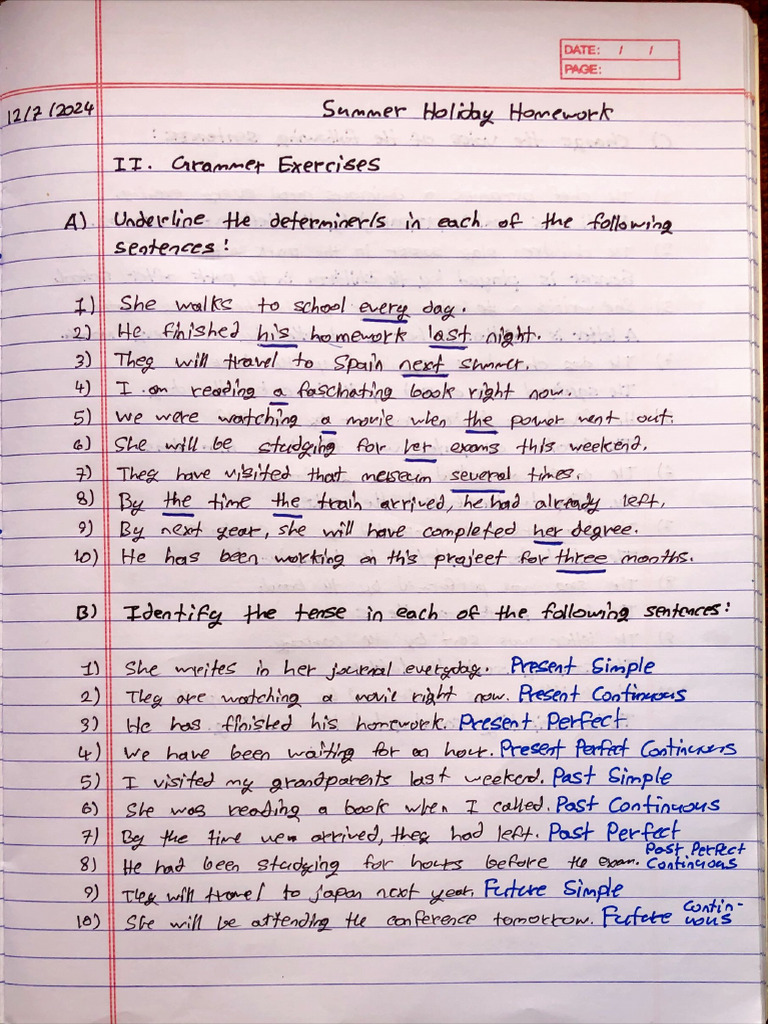 DATE: / /
PAGE:
12/7/2024 Summer Holiday Homework
II. Grammer Exercises
A) Underline the determiner/s in each of the following
sentences:
1) She walks to school every day.
2) He finished his homework last night.
3) They will travel to Spain next summer.
4) I am reading a fascinating book right now.
5) We were watching a movie when the power went out.
6) She will be studying for her exams this weekend.
7) They have visited that museum several times.
8) By the time the train arrived, he had already left.
9) By next year, she will have completed her degree.
10) He has been working on this project for three months.
B) Identify the tense in each of the following sentences:
1) She writes in her journal everyday. Present Simple
2) They are watching a movie right now. Present Continuous
3) He has finished his homework. Present Perfect
4) We have been waiting for an hour. Present Perfect Continuous
5) I visited my grandparents last weekend. Past Simple
6) She was reading a book when I called. Past Continuous
7) By the time arrived, they had left. Past Perfect
8) He had been studying for hours before the exam. Past Perfect Continuous
9) They will travel to Japan next year. Future Simple
10) She will be attending the conference tomorrow. Future Contin-
uous